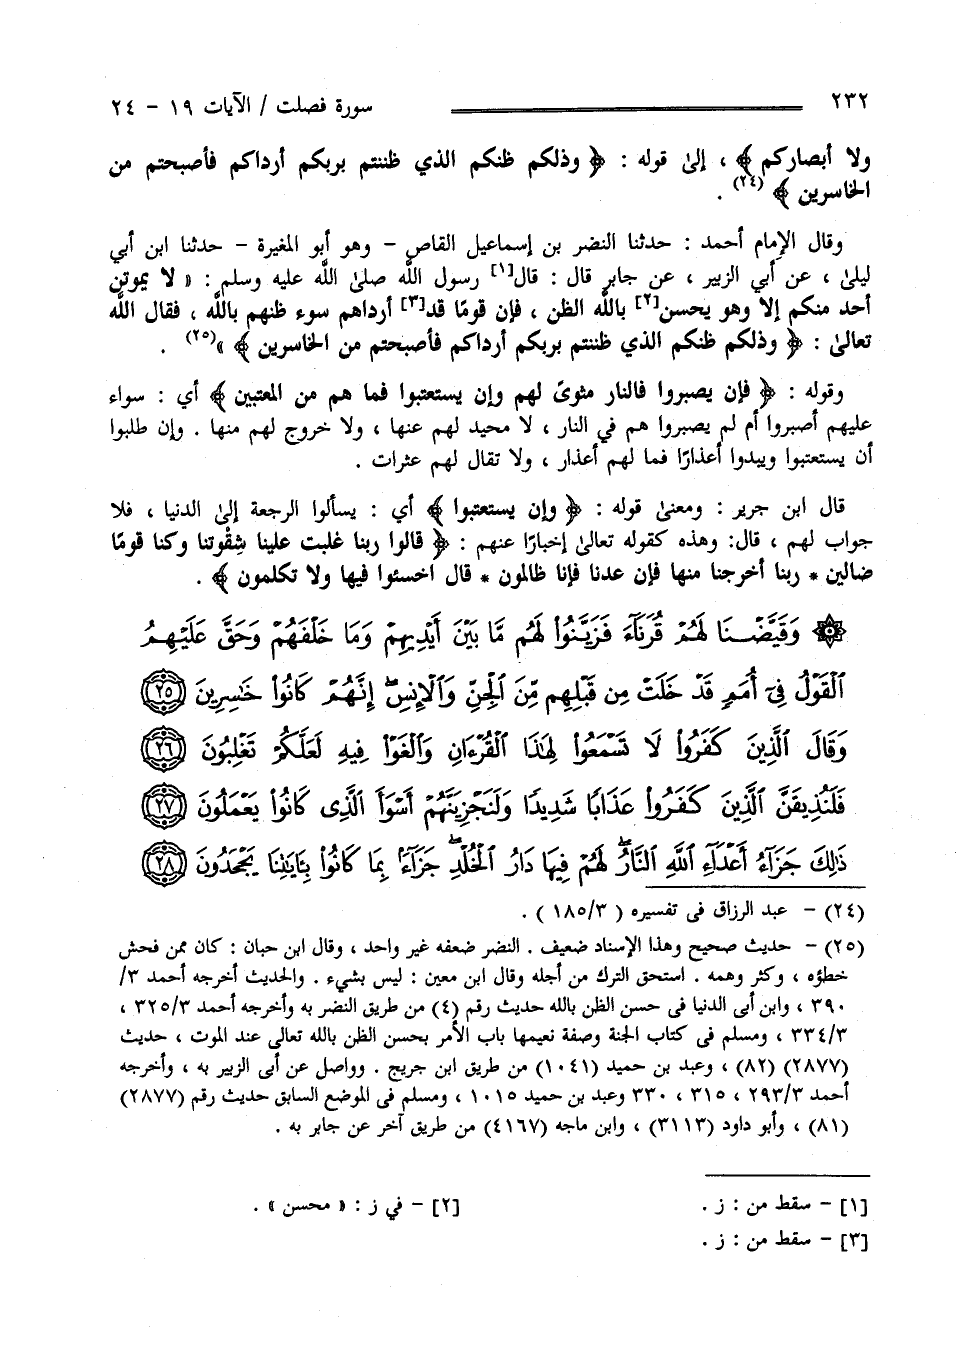 ٢٣٢ سورة فصلت / الآيات ١٩ - ٢٤
ولا أبصاركم ﴾ ، إلىٰ قوله : ﴿ وذلكم ظنكم الذي ظننتم بربكم أرداكم فأصبحتم من
الخاسرين ﴾ (٢٤) .
وقال الإمام أحمد : حدثنا النضر بن إسماعيل القاص - وهو أبو المغيرة - حدثنا ابن أبي
ليلىٰ ، عن أبي الزبير ، عن جابر قال : قال[١] رسول اللَّه صلىٰ اللَّه عليه وسلم : « لا يموتن
أحد منكم إلا وهو يحسن[٢] باللَّه الظن ، فإن قومًا قد[٣] أرداهم سوء ظنهم باللَّه ، فقال اللَّه
تعالىٰ : ﴿ وذلكم ظنكم الذي ظننتم بربكم أرداكم فأصبحتم من الخاسرين ﴾ »(٢٥) .
وقوله : ﴿ فإن يصبروا فالنار مثوىً لهم وإن يستعتبوا فما هم من المعتبين ﴾ أي : سواء
عليهم أصبروا أم لم يصبروا هم في النار ، لا محيد لهم عنها ، ولا خروج لهم منها . وإن طلبوا
أن يستعتبوا ويبدوا أعذارًا فما لهم أعذار ، ولا تقال لهم عثرات .
قال ابن جرير : ومعنىٰ قوله : ﴿ وإن يستعتبوا ﴾ أي : يسألوا الرجعة إلىٰ الدنيا ، فلا
جواب لهم ، قال: وهذه كقوله تعالىٰ إخبارًا عنهم : ﴿ قالوا ربنا غلبت علينا شِقْوتنا وكنا قومًا
ضالين * ربنا أخرجنا منها فإن عدنا فإنا ظالمون * قال اخسئوا فيها ولا تكلمون ﴾ .
۞ وَقَيَّضْـنَا لَهُمْ قُرَنَآءَ فَزَيَّنُوا۟ لَهُم مَّا بَيْنَ أَيْدِيهِمْ وَمَا خَلْفَهُمْ وَحَقَّ عَلَيْهِمُ
ٱلْقَوْلُ فِىٓ أُمَمٍ قَدْ خَلَتْ مِن قَبْلِهِم مِّنَ ٱلْجِنِّ وَٱلْإِنسِ ۖ إِنَّهُمْ كَانُوا۟ خَـٰسِرِينَ ٢٥
وَقَالَ ٱلَّذِينَ كَفَرُوا۟ لَا تَسْمَعُوا۟ لِهَـٰذَا ٱلْقُرْءَانِ وَٱلْغَوْا۟ فِيهِ لَعَلَّكُمْ تَغْلِبُونَ ٢٦
فَلَنُذِيقَنَّ ٱلَّذِينَ كَفَرُوا۟ عَذَابًا شَدِيدًا وَلَنَجْزِيَنَّهُمْ أَسْوَأَ ٱلَّذِى كَانُوا۟ يَعْمَلُونَ ٢٧
ذَٰلِكَ جَزَآءُ أَعْدَآءِ ٱللَّهِ ٱلنَّارُ ۖ لَهُمْ فِيهَا دَارُ ٱلْخُلْدِ ۖ جَزَآءًۢ بِمَا كَانُوا۟ بِـَٔايَـٰتِنَا يَجْحَدُونَ ٢٨
(٢٤) - عبد الرزاق فى تفسيره ( ١٨٥/٣ ) .
(٢٥) - حديث صحيح وهذا الإسناد ضعيف . النضر ضعفه غير واحد ، وقال ابن حبان : كان ممن فحش
خطؤه ، وكثر وهمه . استحق الترك من أجله وقال ابن معين : ليس بشيء . والحديث أخرجه أحمد ٣/
٣٩٠ ، وابن أبى الدنيا فى حسن الظن بالله حديث رقم (٤) من طريق النضر به وأخرجه أحمد ٣٢٥/٣ ،
٣٣٤/٣ ، ومسلم فى كتاب الجنة وصفة نعيمها باب الأمر بحسن الظن بالله تعالى عند الموت ، حديث
(٢٨٧٧) (٨٢) ، وعبد بن حميد (١٠٤١) من طريق ابن جريج . وواصل عن أبى الزبير به ، وأخرجه
أحمد ٢٩٣/٣ ، ٣١٥ ، ٣٣٠ وعبد بن حميد ١٠١٥ ، ومسلم فى الموضع السابق حديث رقم (٢٨٧٧)
(٨١) ، وأبو داود (٣١١٣) ، وابن ماجه (٤١٦٧) من طريق آخر عن جابر به .
[١] - سقط من : ز . [٢] - في ز : « محسن » .
[٣] - سقط من : ز .